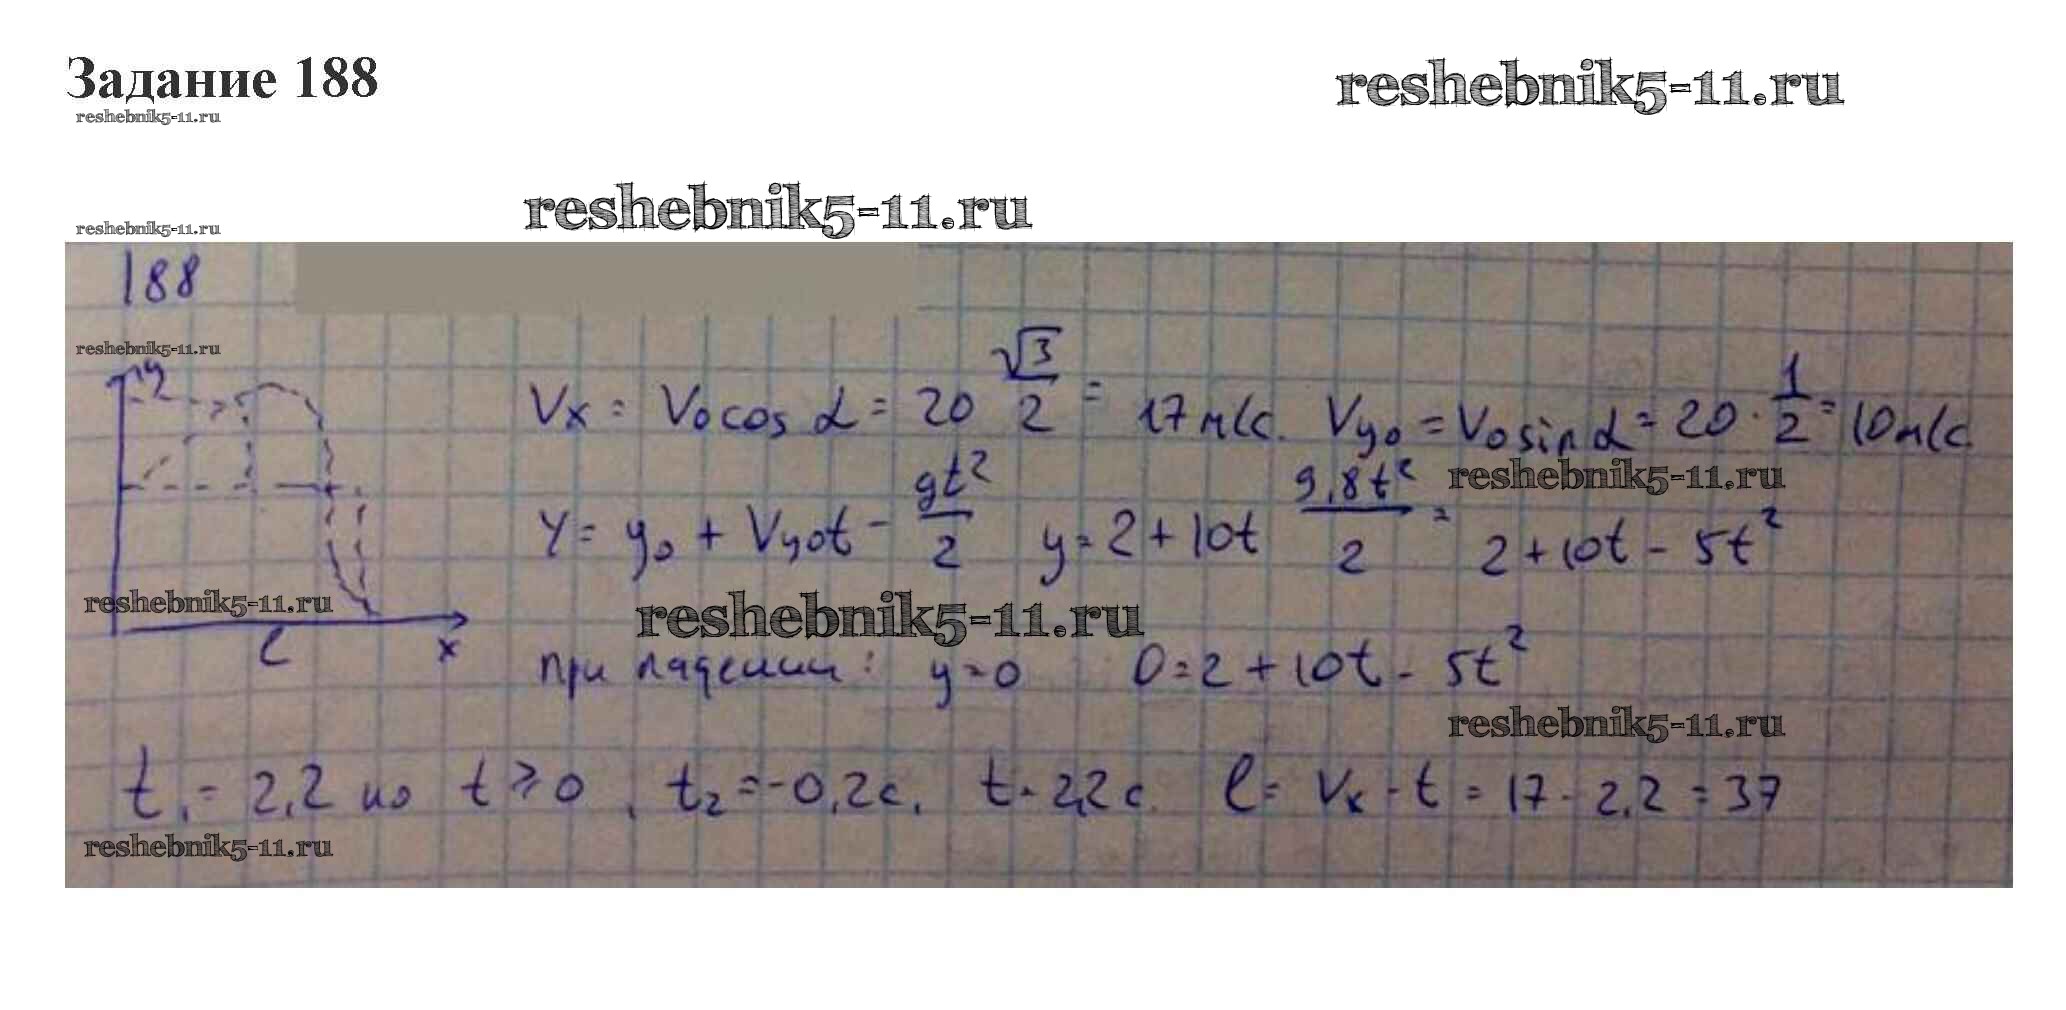 Задание 188
reshebnik5-11.ru
reshebnik5-11.ru
reshebnik5-11.ru
reshebnik5-11.ru
188
reshebnik5-11.ru
y
Vx = V0 cos α = 20 √3/2 = 17 м/с. Vy0 = V0 sin α = 20 · 1/2 = 10 м/с
reshebnik5-11.ru
y = y0 + Vy0t - gt²/2 y = 2 + 10t 9,8t²/2 = 2 + 10t - 5t²
reshebnik5-11.ru
reshebnik5-11.ru
l x
при падении: y=0 0 = 2 + 10t - 5t²
reshebnik5-11.ru
t1 = 2,2 но t ≥ 0, t2 = -0,2 с, t = 2,2 с. l = Vx · t = 17 · 2,2 = 37
reshebnik5-11.ru